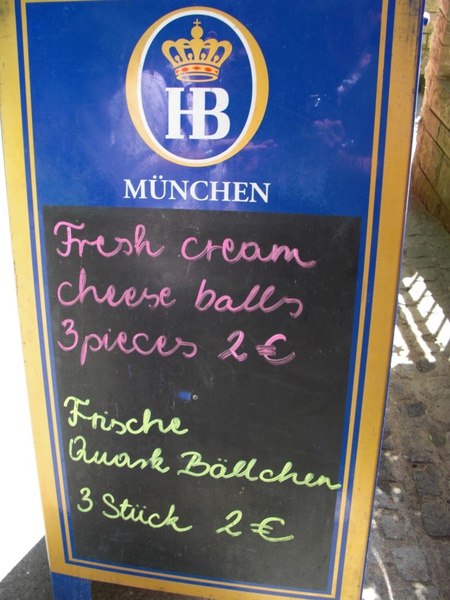 HB
MÜNCHEN
Fresh cream
cheese balls
3 pieces 2 €
Frische
Quark Bällchen
3 Stück 2 €